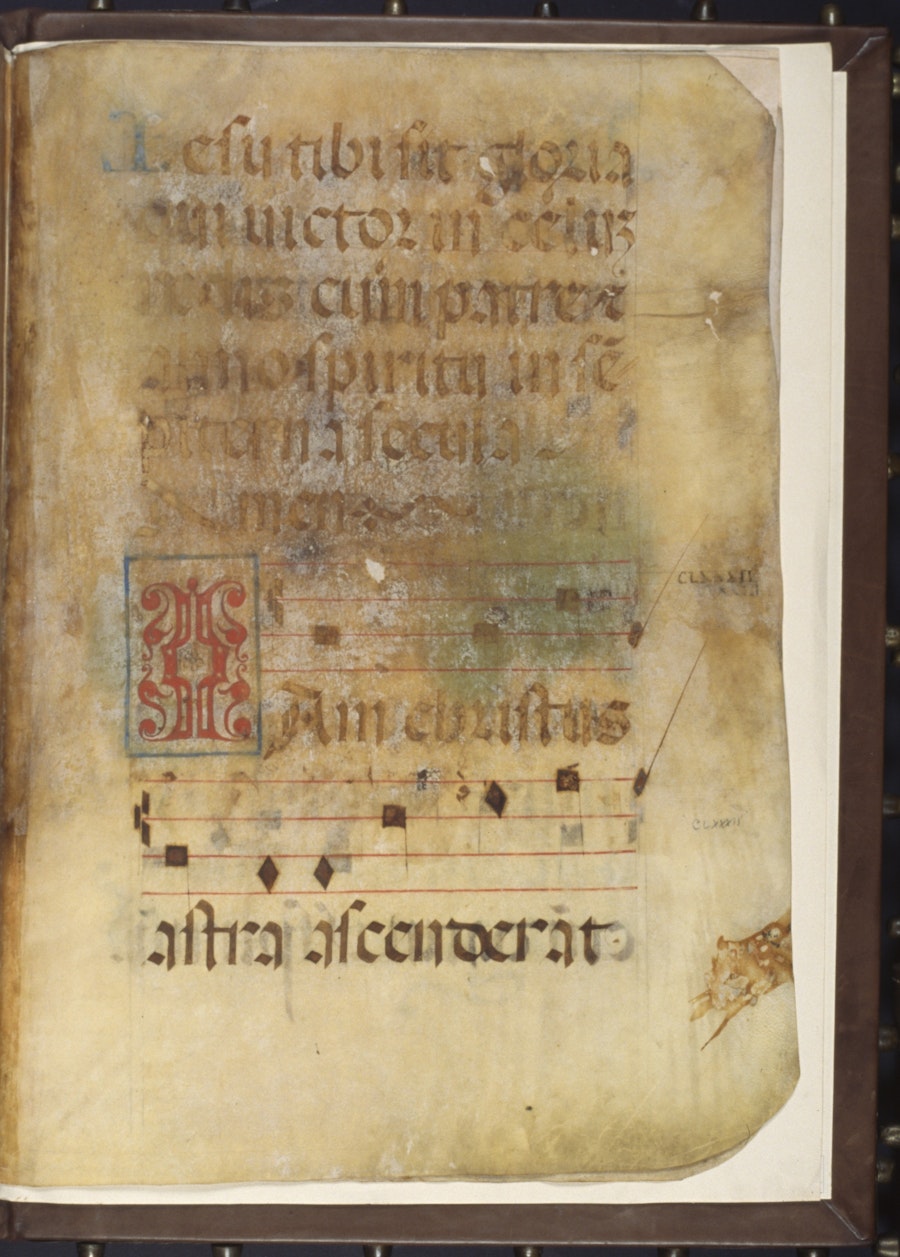 Iesu tibi sit gloria
qui uictor in celuʒ
cum patre et
almo spiritu in sē
piterna secula
Amen
IAm christus
CLXXXII
astra ascenderat